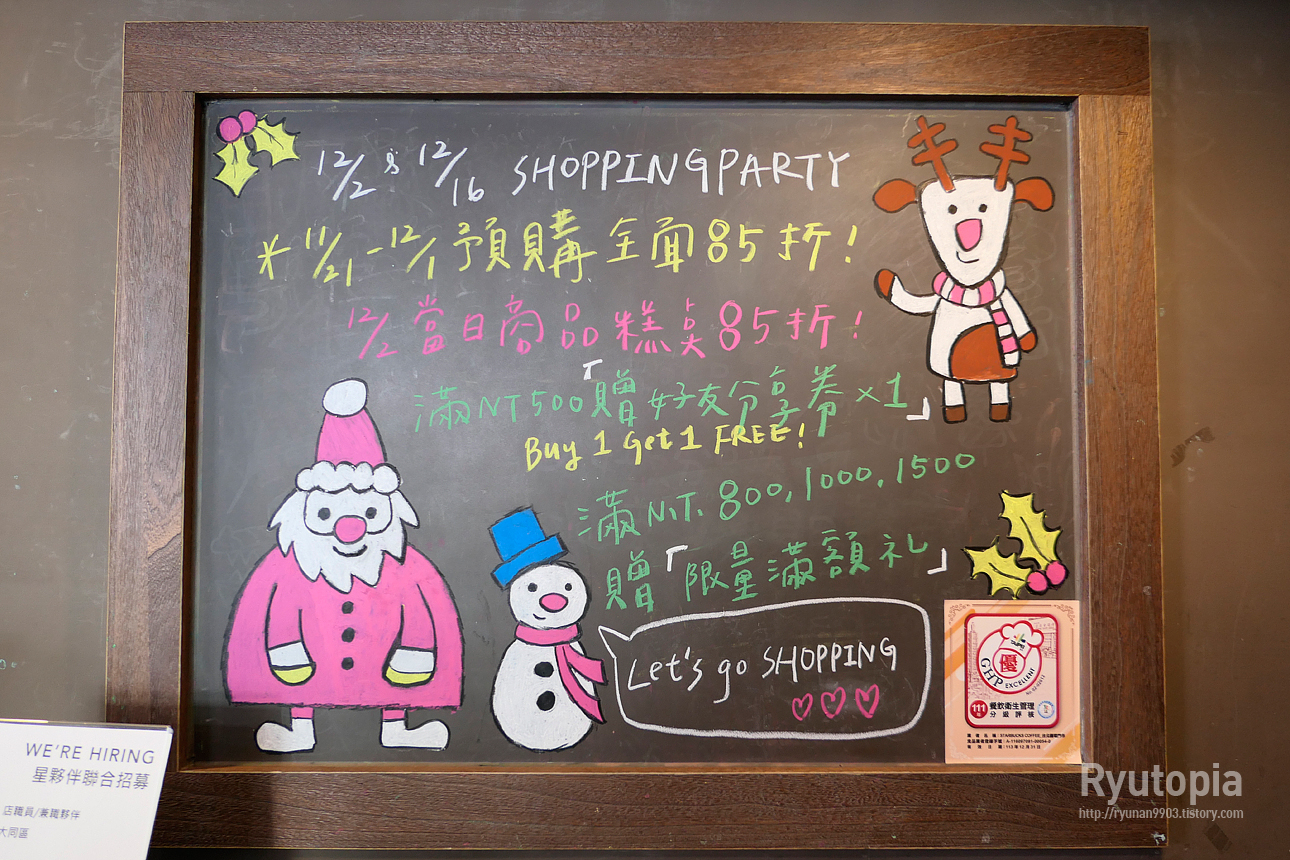 12/2 & 12/16 SHOPPING PARTY
* 11/21 - 12/1 預購全面85折!
12/2 當日商品糕點85折!
滿NT500贈「好友分享券x1」
Buy 1 Get 1 FREE!
滿N.T. 800, 1000, 1500
贈「限量滿額礼」
Let's go SHOPPING
優
GHP EXCELLENT
111
餐飲衛生管理
分級評核
WE'RE HIRING
星夥伴聯合招募
店職員/兼職夥伴
大同區
Ryutopia
http://ryunan9903.tistory.com